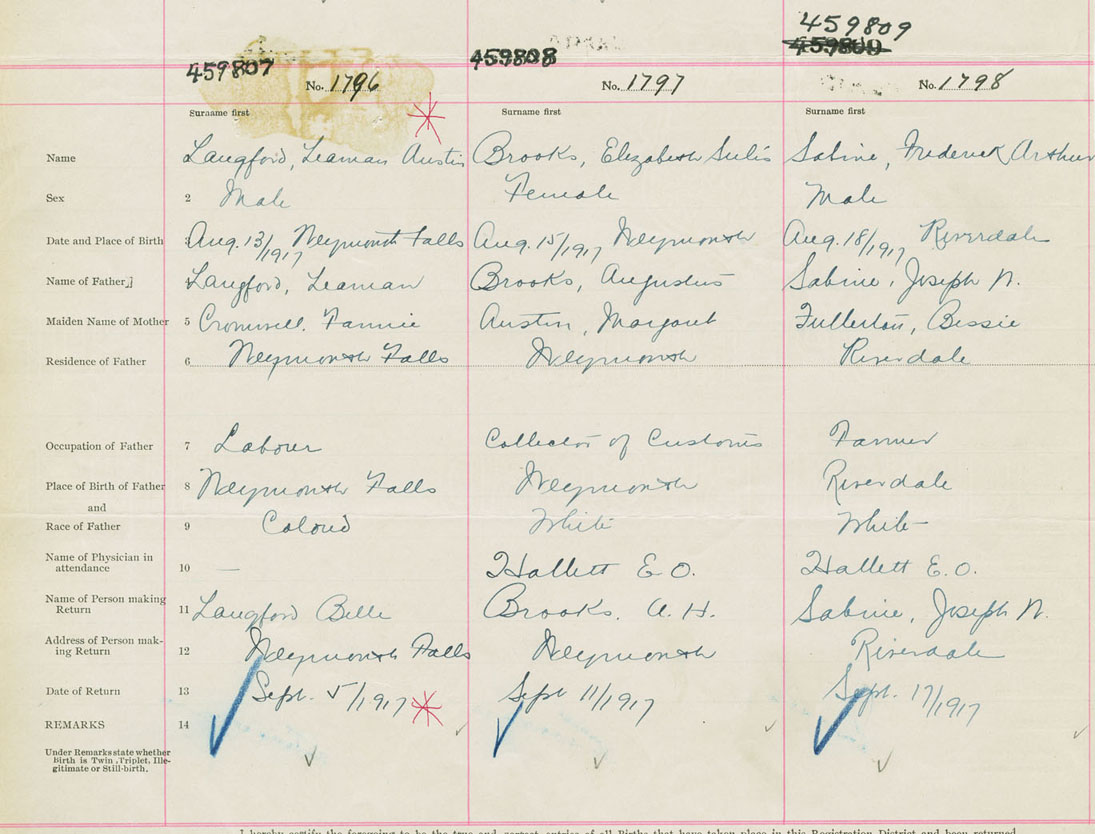 459807 459808 459809
459809
No. 1796 No. 1797 No. 1798
Surname first Surname first Surname first
Name Langford, Leaman Austin Brooks, Elizabeth Sabine, Frederick Arthur
Sex 2 Male Female Male
Date and Place of Birth Aug. 13/1917 Weymouth Falls Aug. 15/1917 Weymouth Aug. 18/1917 Riverdale
Name of Father Langford, Leaman Brooks, Augustus Sabine, Joseph N.
Maiden Name of Mother 5 Cromwell, Fannie Austin, Margaret Fullerton, Bessie
Residence of Father 6 Weymouth Falls Weymouth Riverdale
Occupation of Father 7 Labourer Collector of Customs Farmer
Place of Birth of Father 8 Weymouth Falls Weymouth Riverdale
and
Race of Father 9 Colored White White
Name of Physician in
attendance 10 — Hallett E. O. Hallett E. O.
Name of Person making
Return 11 Langford Belle Brooks, A. H. Sabine, Joseph N.
Address of Person mak-
ing Return 12 Weymouth Falls Weymouth Riverdale
Date of Return 13 Sept. 5/1917 Sept 11/1917 Sept. 17/1917
REMARKS 14
Under Remarks state whether
Birth is Twin, Triplet, Ille-
gitimate or Still-birth.
I hereby certify the foregoing to be the true and correct entries of all Births that have taken place in this Registration District and been returned